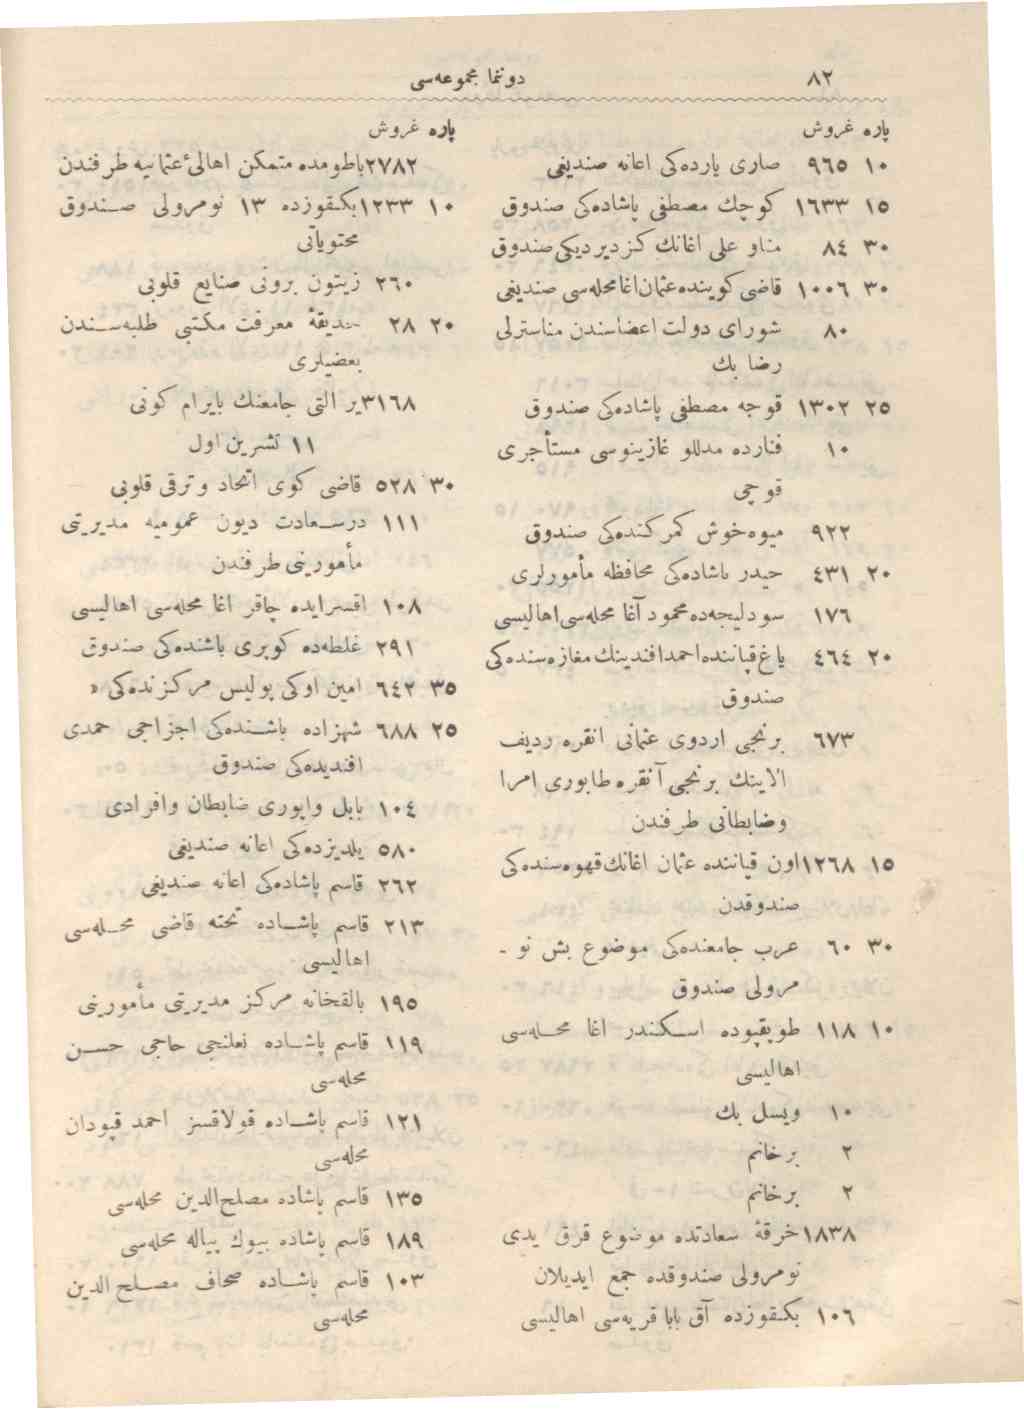 ٨٢
دوننما مجموعه‌سی
پاره غروش
١٠ ٩٦٥ صاری یارده‌کی اعانه صندیغی
١٥ ١٦٣٣ کوچك مصطفی پاشاده‌کی صندوق
٣٠ ٨٤ مناو علی اغانك کزدیردیکی صندوق
٣٠ ١٠٠٦ قاضی کوینده عثمان اغا محله‌سی صندیغی
٨٠ شورای دولت اعضاسندن مناسترلی
رضا بك
٢٥ ١٣٠٢ قوجه مصطفی پاشاده‌کی صندوق
١٠ فنارده مدللو غازینوسی مستأجری
قوچی
٩٢٢ میوه‌خوش کمرکنده‌کی صندوق
٢٠ ٤٣١ حیدر پاشاده‌کی محافظه مأمورلری
١٧٦ سودلیجه‌ده محمود آغا محله‌سی اهالیسی
٢٠ ٤٦٤ یاغ قپاننده احمد افندینك مغازه‌سنده‌کی
صندوق
٦٧٣ برنجی اردوی عثمانی انقره ردیف
الاینك برنجی آنقره طابوری امرا
وضابطانی طرفندن
١٥ ١٢٦٨ اون قپاننده عثمان اغانك قهوه‌سنده‌کی
صندوقدن
٣٠ ٦٠ عرب جامعنده‌کی موضوع بش نو -
مرولی صندوق
١٠ ١١٨ طوپقپوده اسکندر اغا محله‌سی
اهالیسی
١٠ ویسل بك
٢ برخانم
٢ برخانم
١٨٣٨ خرقهٔ سعادتده موضوع قرق یدی
نومرولی صندوقده جمع ایدیلان
١٠٦ بکقوزده آق بابا قریه‌سی اهالیسی
پاره غروش
٢٧٨٢ باطومده متمکن اهالیٔ عثمانیه طرفندن
١٠ ١٢٣٣ بکقوزده ١٣ نومرولی صندوق
محتویاتی
٢٦٠ زیتون برونی صنایع قلوبی
٢٠ ٢٨ حدیقهٔ معرفت مکتبی طلبه‌سندن
بعضیلری
٣١٦٨ یر التی جامعنك بایرام کونی
١١ تشرین اول
٣٠ ٥٢٨ قاضی کوی اتحاد وترقی قلوبی
١١١ درسعادت دیون عمومیه مدیریتی
مأمورینی طرفندن
١٠٨ اقسرایده چاقر اغا محله‌سی اهالیسی
٢٩١ غلطه‌ده کوپری باشنده‌کی صندوق
٣٥ ٦٤٢ امین اوکی پولیس مرکزنده‌کی »
٢٥ ٦٨٨ شهزاده باشنده‌کی اجزاجی حمدی
افندیده‌کی صندوق
١٠٤ بابل واپوری ضابطان وافرادی
٥٨٠ یلدیزده‌کی اعانه صندیغی
٢٦٢ قاسم پاشاده‌کی اعانه صندیغی
٢١٣ قاسم پاشاده تخته قاضی محله‌سی
اهالیسی
١٩٥ بالقخانه مرکز مدیریتی مأمورینی
١١٩ قاسم پاشاده نعلنجی حاجی حسن
محله‌سی
١٢١ قاسم پاشاده قولاقسز احمد قپودان
محله‌سی
١٣٥ قاسم پاشاده مصلح‌الدین محله‌سی
١٨٩ قاسم پاشاده بیوك پیاله محله‌سی
١٠٣ قاسم پاشاده صحاف مصلح الدین
محله‌سی